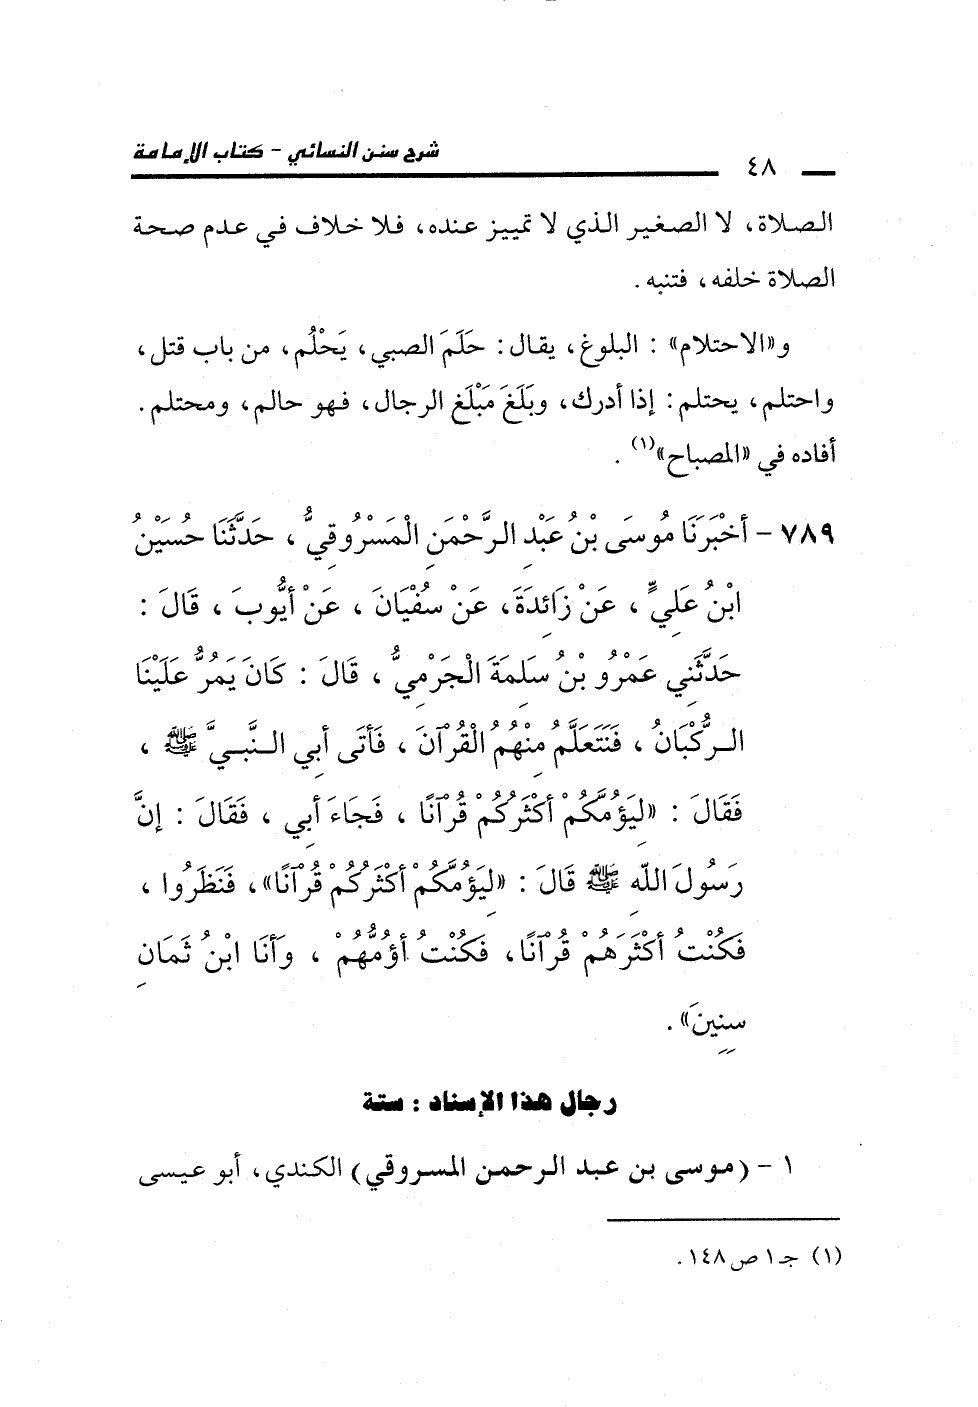 شرح سنن النسائي - كتاب الإمامة
٤٨
الصلاة، لا الصغير الذي لا تمييز عنده، فلا خلاف في عدم صحة
الصلاة خلفه، فتنبه.
و«الاحتلام» : البلوغ، يقال: حَلَمَ الصبي، يَحْلُم، من باب قتل،
واحتلم، يحتلم: إذا أدرك، وبَلَغَ مَبْلَغ الرجال، فهو حالم، ومحتلم.
أفاده في «المصباح»(١) .
٧٨٩ - أخْبَرَنَا مُوسَى بْنُ عَبْدِ الرَّحْمَنِ الْمَسْرُوقِيُّ ، حَدَّثَنَا حُسَيْنُ
ابْنُ عَلِيٍّ ، عَنْ زَائِدَةَ، عَنْ سُفْيَانَ ، عَنْ أيُّوبَ ، قَالَ :
حَدَّثَنِي عَمْرُو بْنُ سَلِمَةَ الْجَرْمِيُّ ، قَالَ : كَانَ يَمُرُّ عَلَيْنَا
الرُّكْبَانُ ، فَنَتَعَلَّمُ مِنْهُمُ الْقُرْآنَ ، فَأتَى أبِي النَّبِيَّ ﷺ ،
فَقَالَ : «لِيَؤُمَّكُمْ أكْثَرُكُمْ قُرْآنًا ، فَجَاءَ أبِي ، فَقَالَ : إنَّ
رَسُولَ اللَّهِ ﷺ قَالَ : «لِيَؤُمَّكُمْ أكْثَرُكُمْ قُرْآنًا»، فَنَظَرُوا ،
فَكُنْتُ أكْثَرَهُمْ قُرْآنًا، فَكُنْتُ أؤُمُّهُمْ ، وَأنَا ابْنُ ثَمَانِ
سِنِينَ» .
رجال هذا الإسناد : ستة
١ - (موسى بن عبد الرحمن المسروقي) الكندي، أبو عيسى
(١) جـ ١ ص ١٤٨.